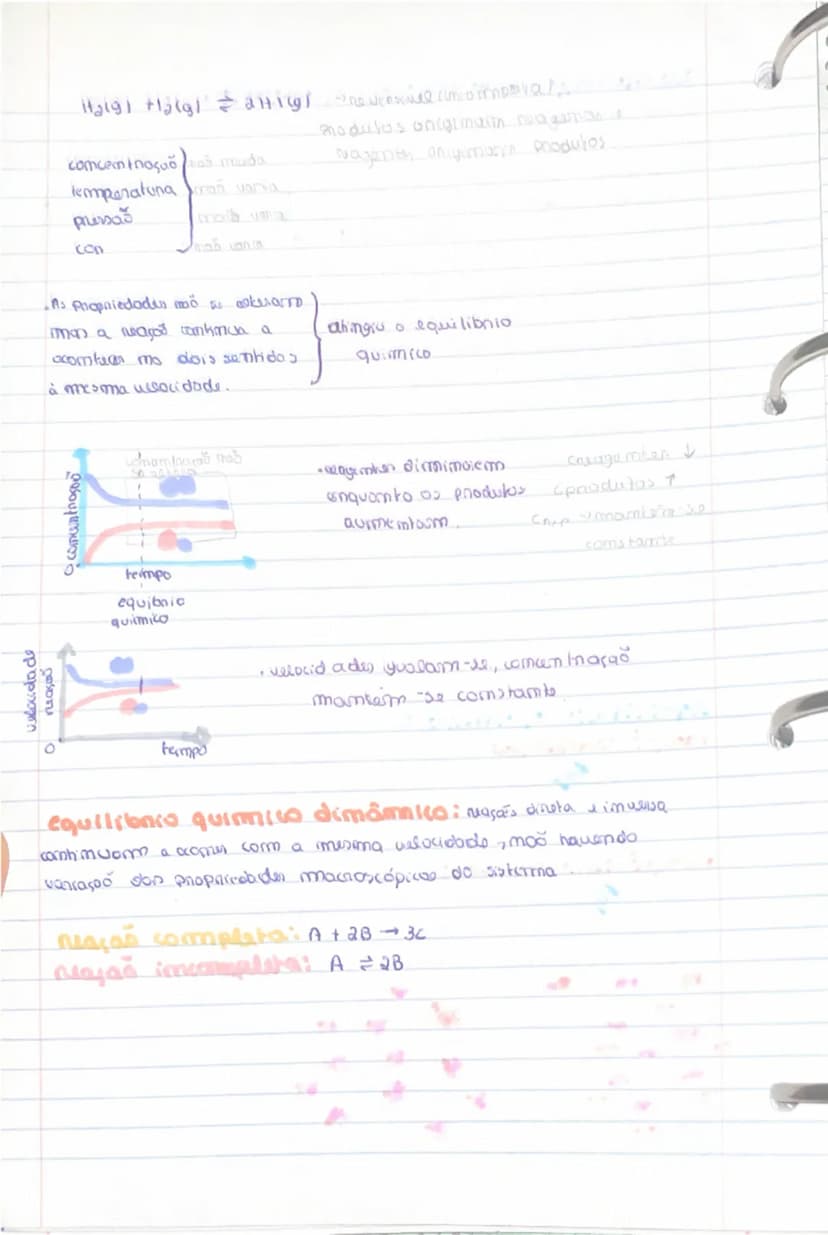 H2(g) + I2(g) ⇌ 2HI(g) →
produtos originam reagentes e
reagentes originam produtos
concentração não muda
temperatura não varia
pressão não varia
cor não varia
. As propriedades não se alteram
mas a reação continua a
acontecer nos dois sentidos
à mesma velocidade.
atingiu o equilíbrio
químico
concentração não
concentração
0
tempo
equíbrio
químico
. reagentes diminuiem
enquanto os produtos
aumentam.
Creagentes ↓
Cprodutos ↑
mantêm-se
constante
velocidade
reação
0
tempo
. velocidades igualam-se, concentração
mantém-se constante.
equilíbrio químico dinâmico: reação direta e inversa
continuam a ocorrer com a mesma velocidade, não havendo
variação das propriedades macroscópicas do sistema.
reação completa: A + 2B → 3C
reação incompleta: A ⇌ 2B